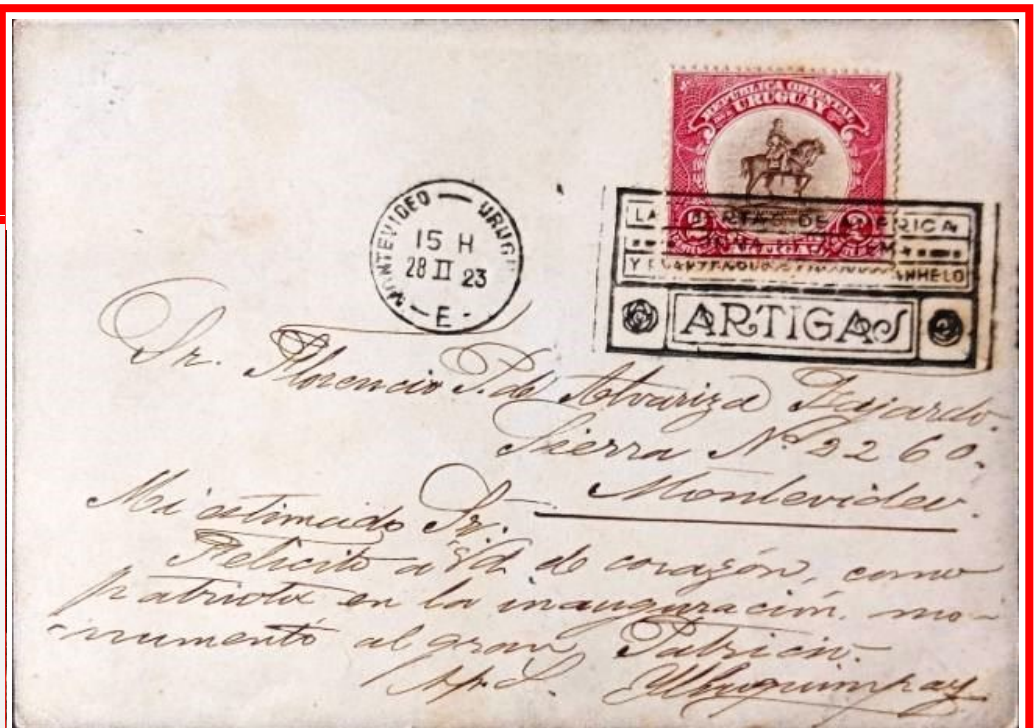 REPÚBLICA ORIENTAL
DEL URUGUAY
2 2
MONTEVIDEO — URUG
15 H
28 II 23
E
LA LIBERTAD DE AMERICA
Y ANHELO
ARTIGAS
Sr. Florencio P. de Alvariza Fajardo.
Sierra Nº 2260.
Montevideo.
Mi estimado Sr.
Felicito a Vd. de corazón, como
patriota en la inauguración mo-
numento al gran Patricio.